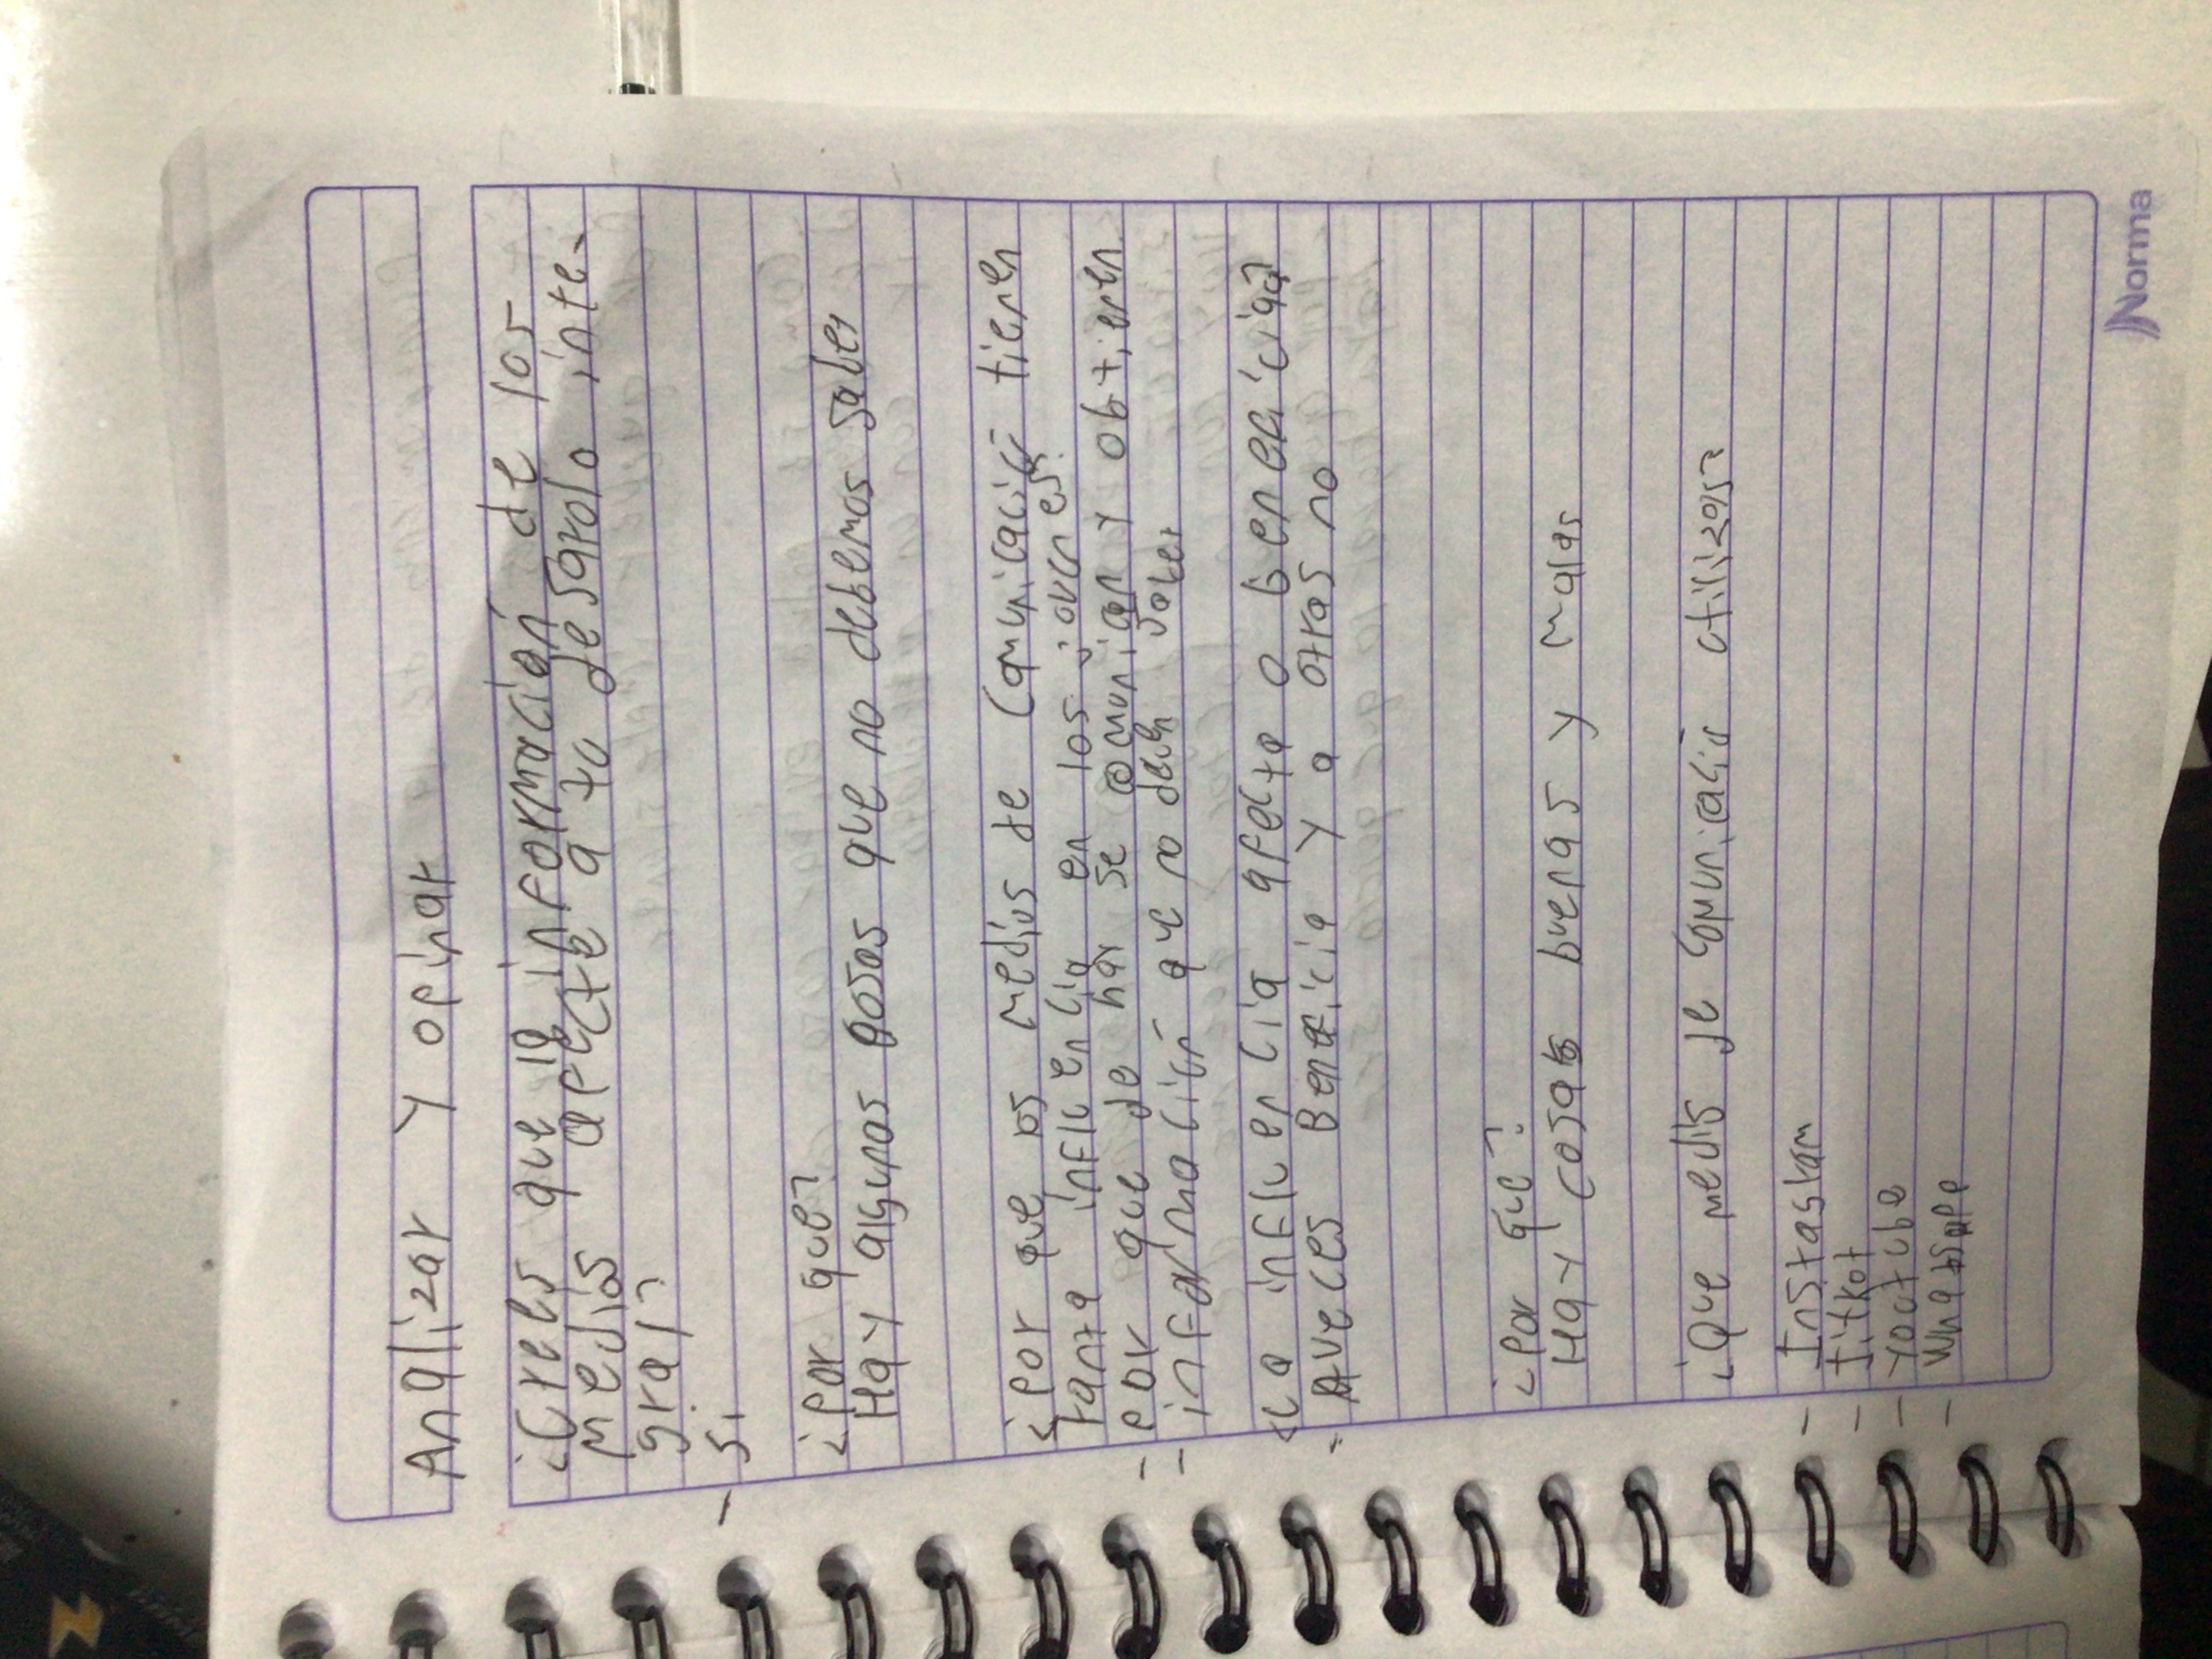 Analizar y opinar
¿Crees que la información de los
medios afecte a tu desarolo inte-
gral?
Si
¿Por que?
Hay algunas cosas que no debemos saber
¿Por que los medios de comunicación tienen
tanta influencia en los jovenes?
por que de hay se comunican y obtienen
información que no deben saber
¿La influencia afecta o beneficia?
Aveces Beneficia y a otras no
¿Por que?
Hay cosas buenas y malas
¿Que medios de comunicación utilizas?
- Instaskam
- Titkot
- Youtube
- Whatsapp
Norma